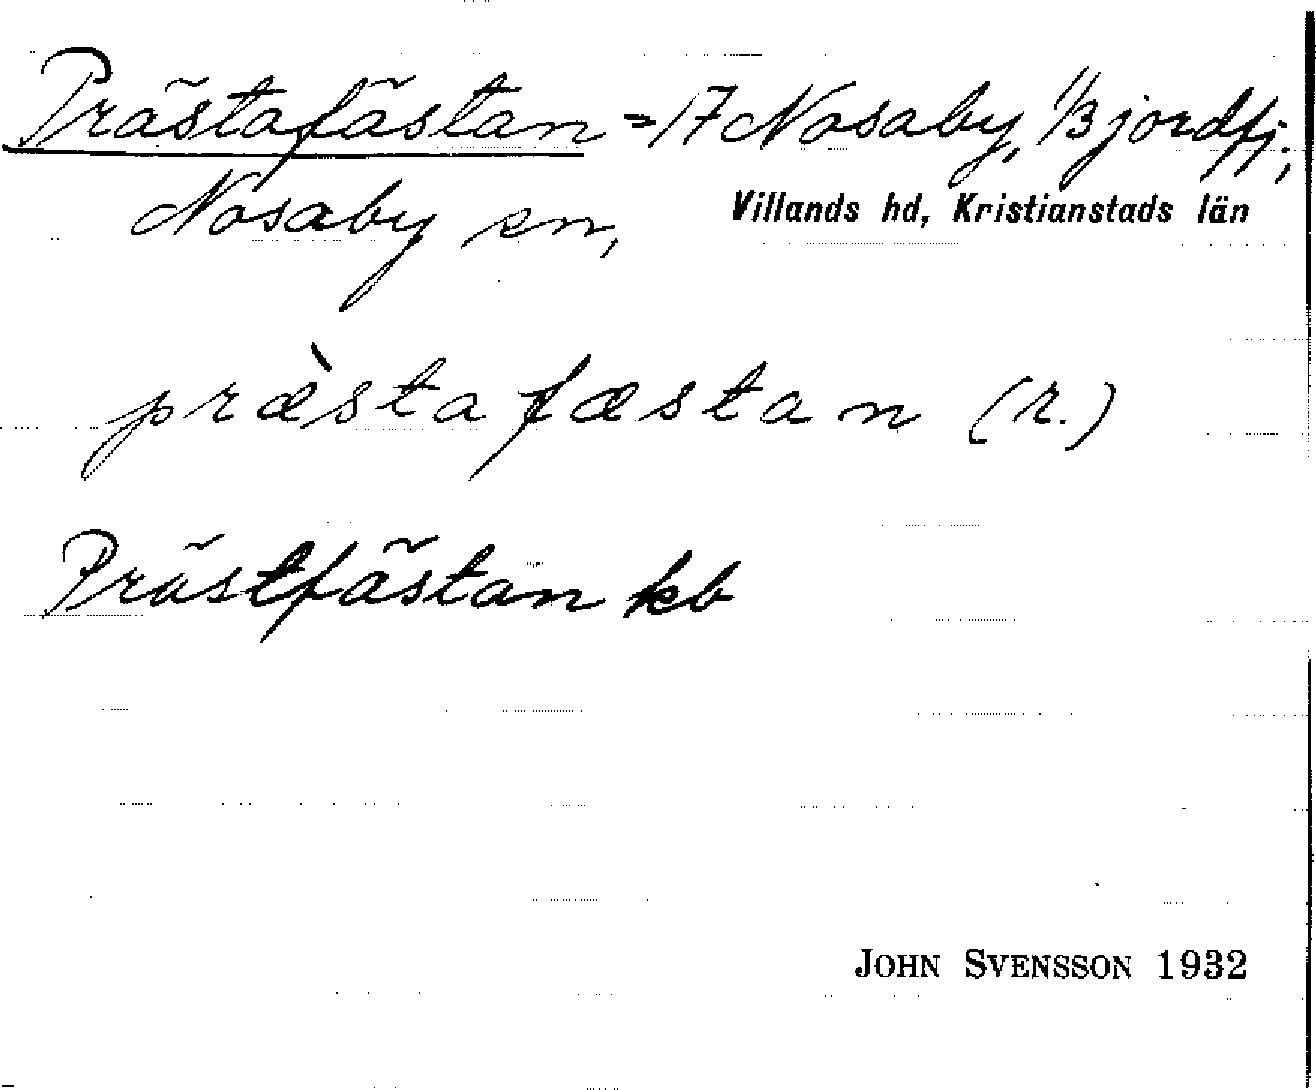 Prästafästan = 17 Nosaby, 1/3 jordfj.,
Nosaby sn, Villands hd, Kristianstads län
præ̀stafæstan (r.)
Prästfästan kb
JOHN SVENSSON 1932